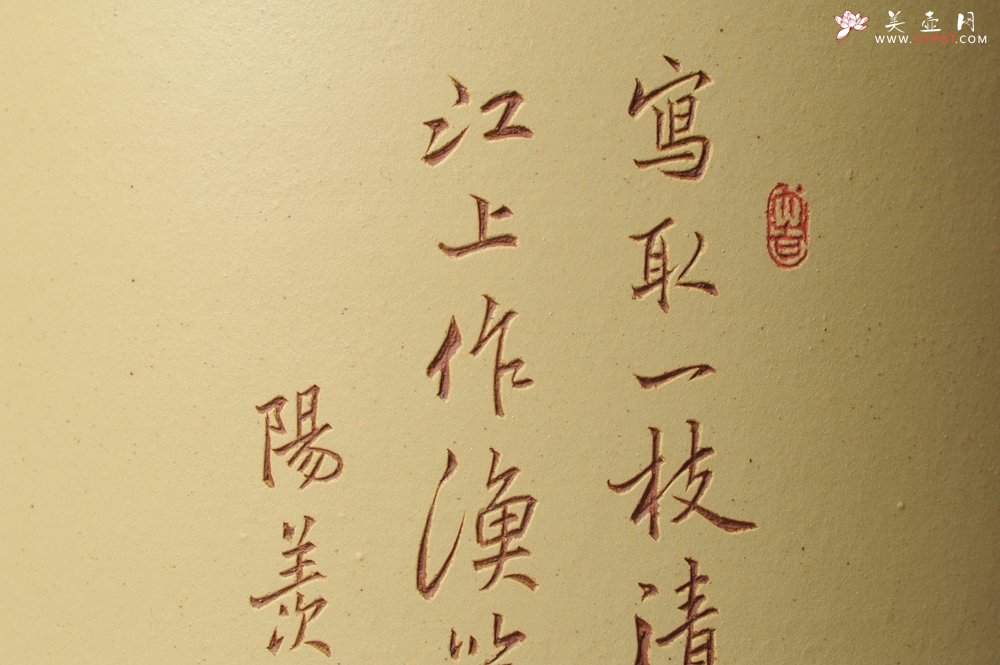 寫取一枝清
江上作漁
陽羨
美壶网
WWW.ZISHT.COM